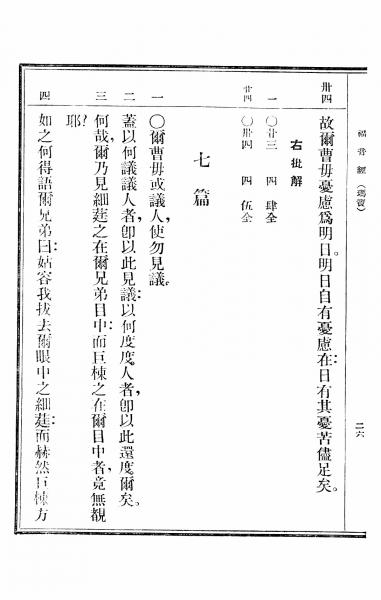 福音經（瑪竇）
二六
卅四 故爾曹毋憂慮爲明日。明日自有憂慮在：日有其憂苦儘足矣。
右批解
一 〇卅三 四 肆仝
卅四 〇卅四 四 伍仝
七篇
一 〇爾曹毋或議人，使勿見議。
二 蓋以何議議人者，卽以此見議：以何度度人者，卽以此還度爾矣。
三 何哉，爾乃見細莛之在爾兄弟目中：而巨棟之在爾目中者，竟無覩
耶？
四 如之何得語爾兄弟曰：姑容我拔去爾眼中之細莛：而赫然巨棟方